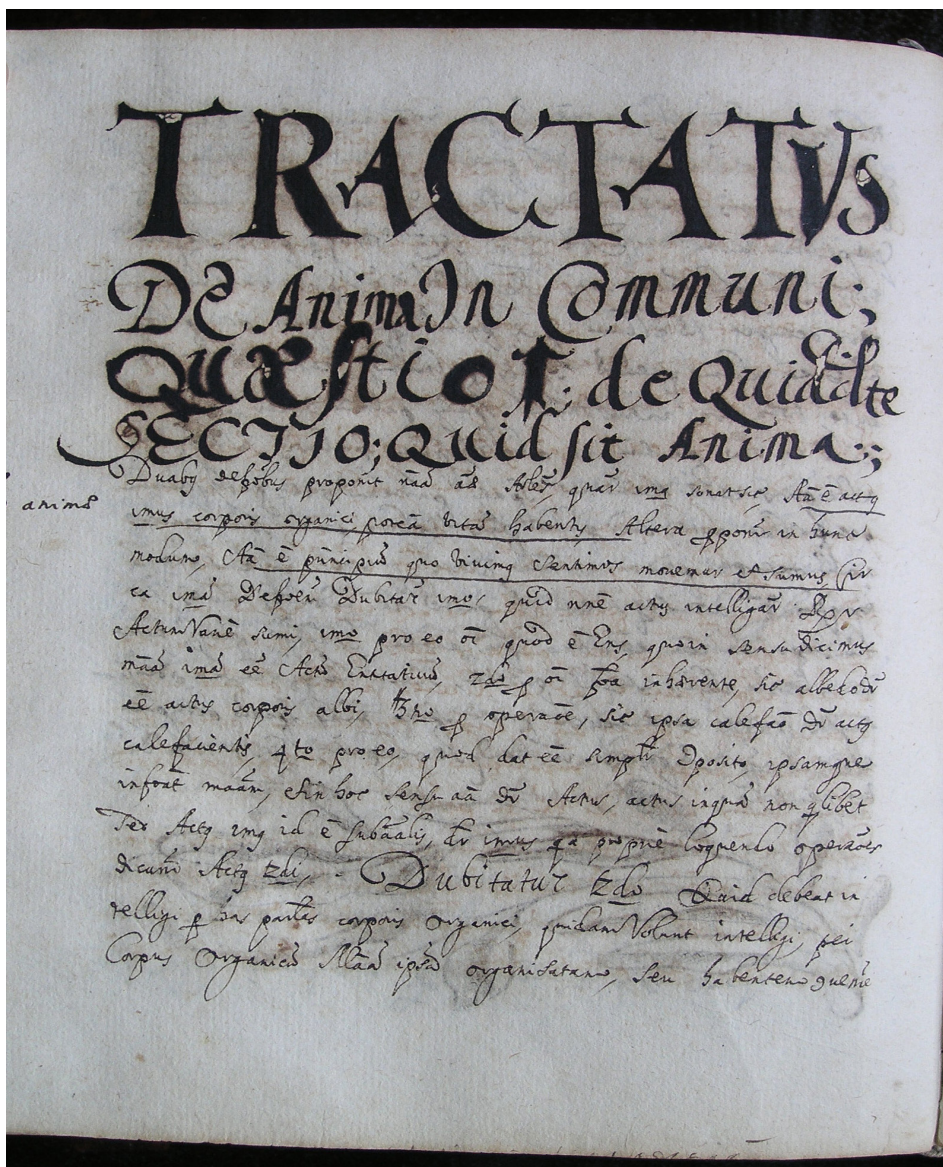 TRACTATVS
De Anima In Communi;
QUÆstio 1: de Quiddite
SECTIO; QUid sit Anima;
Duabq defobus proponit nãm aæ Arles, quar ima sonat sic, Aã ẽ actq
animæ
imus corporis organici, potẽa vitã habentis Altera pponir in hunc
modum, Aã ẽ principiũ quo vivimq Sentimus movemur et sumus, Cir
ca imã Defoem Dubitar imo, quid nnẽ actus intelligar
Actum Vanẽ sumi, imo pro eo oĩ quod ẽ Ens, quo in sensu dicimus
mãm imã eẽ Actũ Entitativũ, 2do p oĩ foa inhærente, sic albedo dr
eẽ actus corporis albi, 3tio p operaõe, sic ipsa calefaõ dr actq
calefacientis, 4to pro eo, quod dat eẽ simplr Dposito, ipsamque
infoat maam, et in hoc sensu aã dr Actus, actus inquã non qlibet
sed Actq imq id ẽ subãlis, dr imus qa propriè loquendo operãoes
dicuntr Actq 2di, Dubitatur 2do Quid debeat in
telligi p has partlas corporis Organici, quidam Volunt intelligi, per
Corpus Organicũ Mãm ipsã organisatam, seu habentem